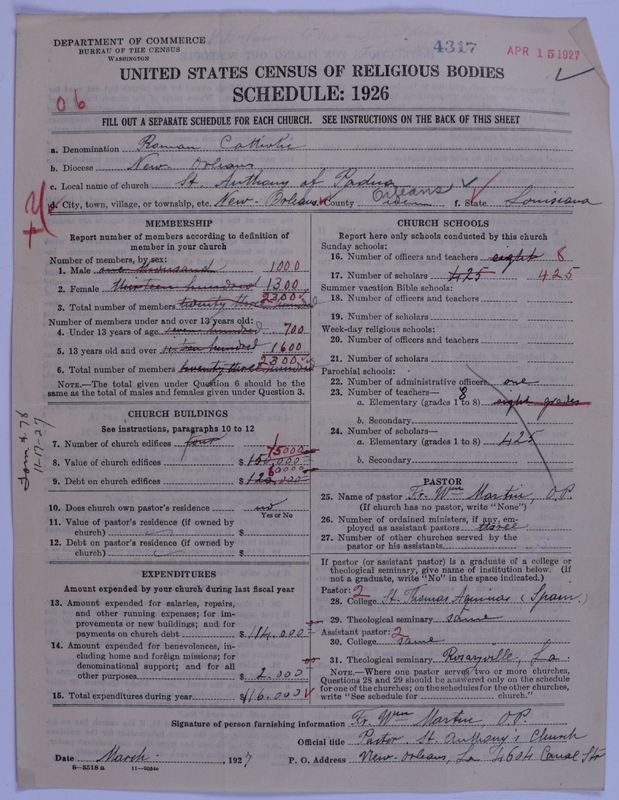 DEPARTMENT OF COMMERCE
BUREAU OF THE CENSUS
WASHINGTON
4317
APR 15 1927
UNITED STATES CENSUS OF RELIGIOUS BODIES
SCHEDULE: 1926
06
FILL OUT A SEPARATE SCHEDULE FOR EACH CHURCH. SEE INSTRUCTIONS ON THE BACK OF THIS SHEET
a. Denomination Roman Catholic
b. Diocese New Orleans
c. Local name of church St. Anthony of Padua
d. City, town, village, or township, etc. New-Orleans County Orleans f. State Louisiana
MEMBERSHIP
Report number of members according to definition of
member in your church
Number of members, by sex:
1. Male one thousand 1000
2. Female thirteen hundred 1300
3. Total number of members twenty three hundred 2300
Number of members under and over 13 years old:
4. Under 13 years of age seven hundred 700
5. 13 years old and over sixteen hundred 1600
6. Total number of members twenty three hundred 2300
NOTE.—The total given under Question 6 should be the
same as the total of males and females given under Question 3.
CHURCH BUILDINGS
See instructions, paragraphs 10 to 12
7. Number of church edifices four 1
8. Value of church edifices $ 150,000 75000
9. Debt on church edifices $ 120,000 60000
10. Does church own pastor's residence no
Yes or No
11. Value of pastor's residence (if owned by
church) $
12. Debt on pastor's residence (if owned by
church) $
EXPENDITURES
Amount expended by your church during last fiscal year
13. Amount expended for salaries, repairs,
and other running expenses; for im-
provements or new buildings; and for
payments on church debt $ 14.000
14. Amount expended for benevolences, in-
cluding home and foreign missions; for
denominational support; and for all
other purposes $ 2.000
15. Total expenditures during year $ 16.000
CHURCH SCHOOLS
Report here only schools conducted by this church
Sunday schools:
16. Number of officers and teachers eight 8
17. Number of scholars 425 425
Summer vacation Bible schools:
18. Number of officers and teachers
19. Number of scholars
Week-day religious schools:
20. Number of officers and teachers
21. Number of scholars
Parochial schools:
22. Number of administrative officers one
23. Number of teachers—
a. Elementary (grades 1 to 8) 8 eight grades
b. Secondary
24. Number of scholars—
a. Elementary (grades 1 to 8) 425
b. Secondary
PASTOR
25. Name of pastor Fr. Wm Martin, O.P.
(If church has no pastor, write "None")
26. Number of ordained ministers, if any, em-
ployed as assistant pastors three
27. Number of other churches served by the
pastor or his assistants
If pastor (or assistant pastor) is a graduate of a college or
theological seminary, give name of institution below. (If
not a graduate, write "No" in the space indicated.)
Pastor: 2
28. College St. Thomas Aquinas (Spain)
29. Theological seminary same
Assistant pastor: 2
30. College same
31. Theological seminary Rosaryville, La
NOTE.—Where one pastor serves two or more churches,
Questions 28 and 29 should be answered only on the schedule
for one of the churches; on the schedules for the other churches,
write "See schedule for church."
Signature of person furnishing information Fr. Wm Martin O.P.
Official title Pastor St Anthony's Church
Date March 1927 P. O. Address New-Orleans, La 4604 Canal Str
8—5518 a